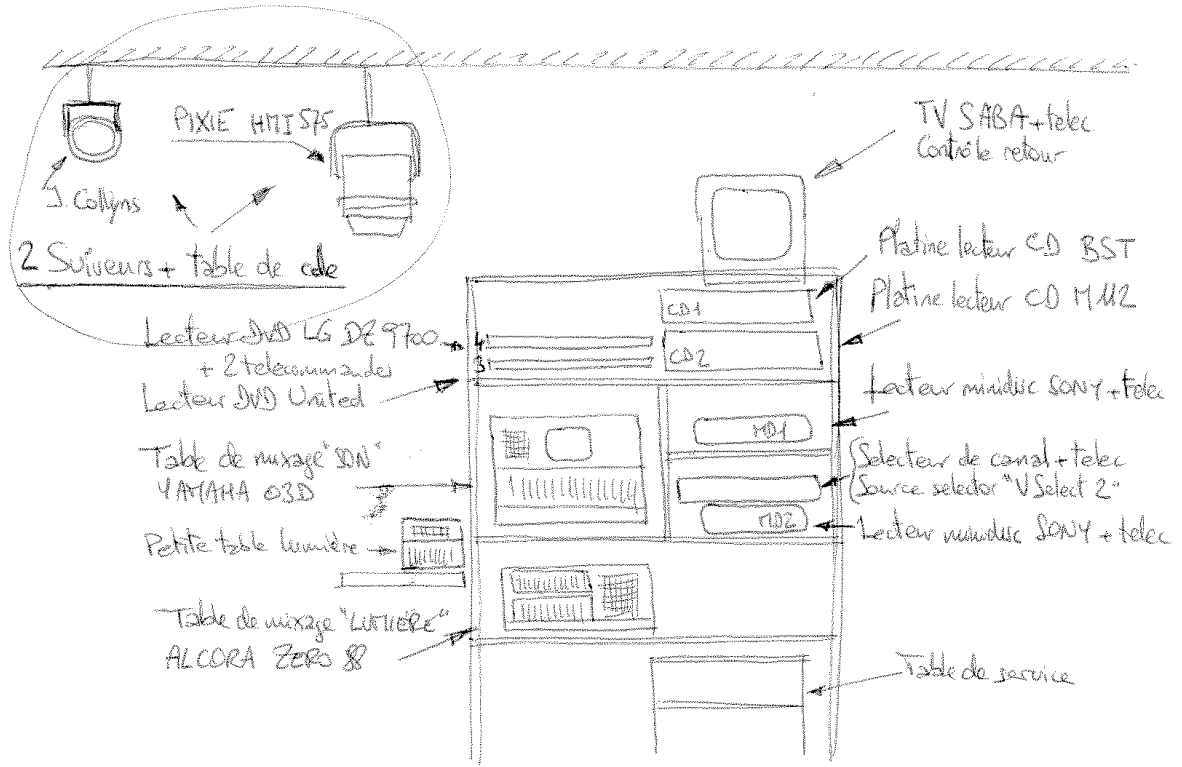 PIXIE HMI 575
Collyns
2 Suiveurs + table de cde
TV SABA + telec
Contrôle retour
Platine lecteur CD BST
Platine lecteur CD M112
CD1
CD2
Lecteur DVD LG DZ 9700
+ 2 telecommandes
Lecteur DVD United
4
3
Lecteur minidisc SONY + telec
MD1
Table de mixage "SON"
YAMAHA 03D
Selecteur de canal + telec
Source selector "V Select 2"
MD2
Lecteur minidisc SONY + telec
Petite table lumière
Table de mixage "LUMIERE"
ALCORA ZERO 88
Table de service